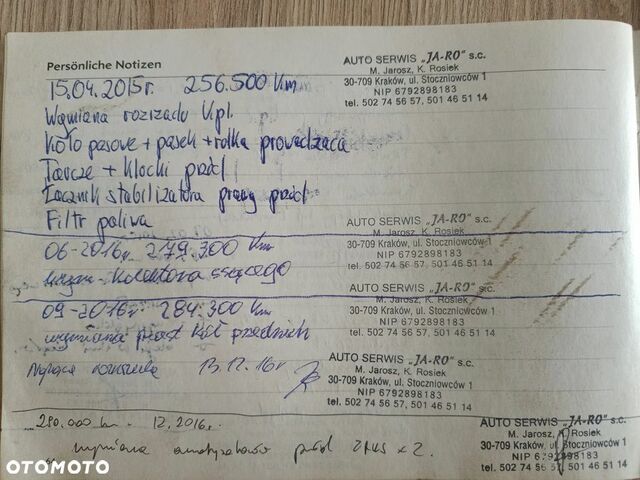 Persönliche Notizen
AUTO SERWIS „JA-RO" s.c.
M. Jarosz, K. Rosiek
30-709 Kraków, ul. Stoczniowców 1
NIP 6792898183
tel. 502 74 56 57, 501 46 51 14
15.04.2015r. 256.500 Km
Wymiana rozrządu kpl.
Koło pasowe + pasek + rolka prowadząca
Tarcze + klocki przód
Łącznik stabilizatora prawy przód
Filtr paliwa
AUTO SERWIS „JA-RO" s.c.
M. Jarosz, K. Rosiek
30-709 Kraków, ul. Stoczniowców 1
NIP 6792898183
tel. 502 74 56 57, 501 46 51 14
06-2016r 279.300 Km
kolektora ssącego
AUTO SERWIS „JA-RO" s.c.
M. Jarosz, K. Rosiek
30-709 Kraków, ul. Stoczniowców 1
NIP 6792898183
tel. 502 74 56 57, 501 46 51 14
09-2016r 284.300 Km
wymiana piast kół przednich
AUTO SERWIS „JA-RO" s.c.
M. Jarosz, K. Rosiek
30-709 Kraków, ul. Stoczniowców 1
NIP 6792898183
tel. 502 74 56 57, 501 46 51 14
Naprawa 13.12.16r
290.000 km - 12.2016r.
wymiana amortyzatorów przód x 2.
AUTO SERWIS „JA-RO" s.c.
M. Jarosz, K. Rosiek
30-709 Kraków, ul. Stoczniowców 1
NIP 6792898183
tel. 502 74 56 57, 501 46 51 14
OTOMOTO